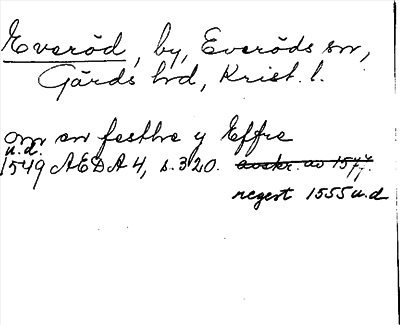 Everöd, by, Everöds sn,
Gärds hd, Krist. l.
om en festhe y Effre
u.d.
1549 AEDA 4, s. 320. avskr. av 1577.
regest 1555 u.d